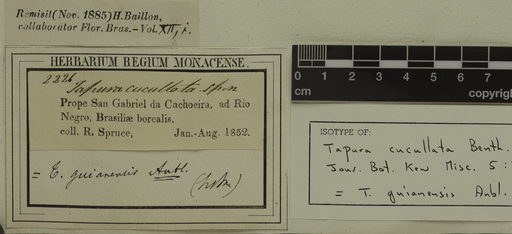 Remisit (Nov. 1885) H. Baillon,
collaborator Flor. Bras. – Vol. XII, i.
HERBARIUM REGIUM MONACENSE.
2226
Tapura cucullata sp. n
Prope San Gabriel da Cachoeira, ad Rio
Negro, Brasiliæ borealis,
coll. R. Spruce, Jan.-Aug. 1852.
= T. guianensis Aubl.
0 1 2 3 4 5
cm copyright
ISOTYPE OF:
Tapura cucullata Benth.
Jour. Bot. Kew Misc. 5:
= T. guianensis Aubl.